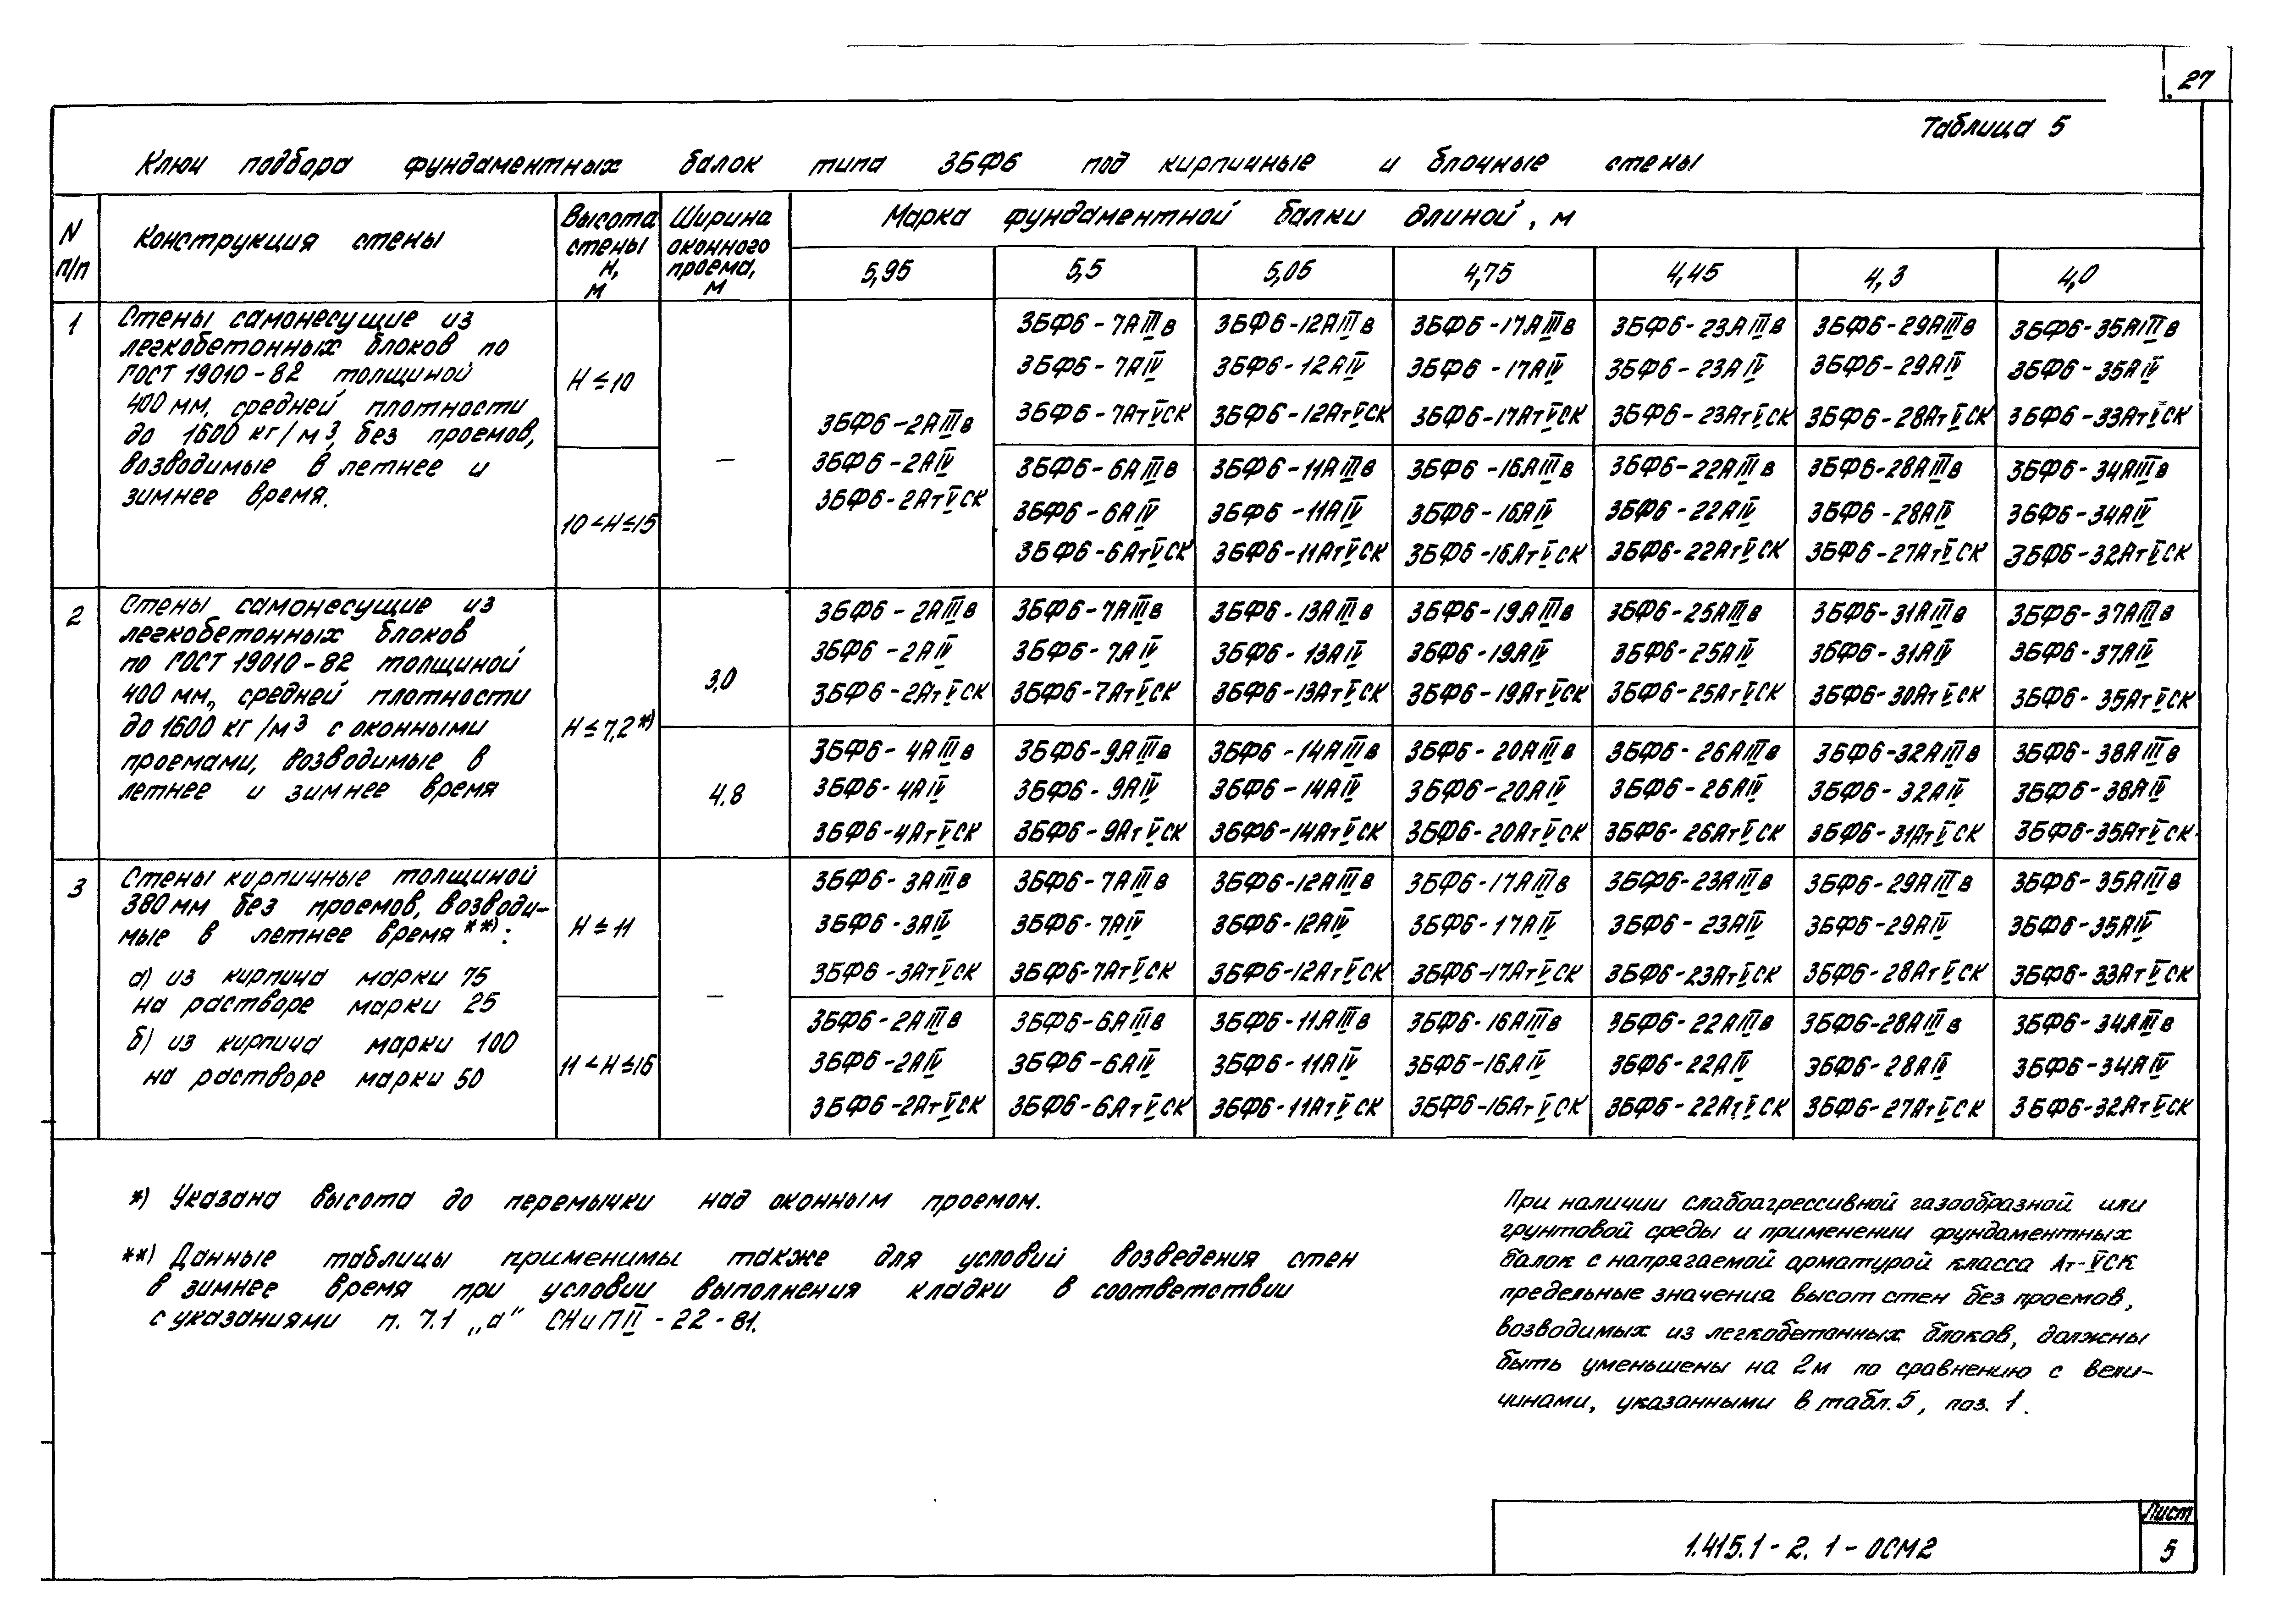 27
Таблица 5
Ключ подбора фундаментных балок типа 3БФ6 под кирпичные и блочные стены
N п/п
Конструкция стены
Высота стены Н, м
Ширина оконного проема, м
Марка фундаментной балки длиной, м
5,95 5,5 5,05 4,75 4,45 4,3 4,0
1
Стены самонесущие из
легкобетонных блоков по
ГОСТ 19010-82 толщиной
400 мм, средней плотности
до 1600 кг/м³, без проемов,
возводимые в летнее и
зимнее время.
Н ≤ 10
3БФ6-7АIIIв 3БФ6-12АIIIв 3БФ6-17АIIIв 3БФ6-23АIIIв 3БФ6-29АIIIв 3БФ6-35АIIIв
3БФ6-7АIV 3БФ6-12АIV 3БФ6-17АIV 3БФ6-23АIV 3БФ6-29АIV 3БФ6-35АIV
3БФ6-7АтVСК 3БФ6-12АтVСК 3БФ6-17АтVСК 3БФ6-23АтVСК 3БФ6-28АтVСК 3БФ6-33АтVСК
–
3БФ6-2АIIIв
3БФ6-2АIV
3БФ6-2АтVСК
10 < Н ≤ 15
3БФ6-6АIIIв 3БФ6-11АIIIв 3БФ6-16АIIIв 3БФ6-22АIIIв 3БФ6-28АIIIв 3БФ6-34АIIIв
3БФ6-6АIV 3БФ6-11АIV 3БФ6-16АIV 3БФ6-22АIV 3БФ6-28АIV 3БФ6-34АIV
3БФ6-6АтVСК 3БФ6-11АтVСК 3БФ6-16АтVСК 3БФ6-22АтVСК 3БФ6-27АтVСК 3БФ6-32АтVСК
2
Стены самонесущие из
легкобетонных блоков
по ГОСТ 19010-82 толщиной
400 мм, средней плотности
до 1600 кг/м³ с оконными
проемами, возводимые в
летнее и зимнее время
Н ≤ 7,2*)
3,0
3БФ6-2АIIIв 3БФ6-7АIIIв 3БФ6-13АIIIв 3БФ6-19АIIIв 3БФ6-25АIIIв 3БФ6-31АIIIв 3БФ6-37АIIIв
3БФ6-2АIV 3БФ6-7АIV 3БФ6-13АIV 3БФ6-19АIV 3БФ6-25АIV 3БФ6-31АIV 3БФ6-37АIV
3БФ6-2АтVСК 3БФ6-7АтVСК 3БФ6-13АтVСК 3БФ6-19АтVСК 3БФ6-25АтVСК 3БФ6-30АтVСК 3БФ6-35АтVСК
4,8
3БФ6-4АIIIв 3БФ6-9АIIIв 3БФ6-14АIIIв 3БФ6-20АIIIв 3БФ6-26АIIIв 3БФ6-32АIIIв 3БФ6-38АIIIв
3БФ6-4АIV 3БФ6-9АIV 3БФ6-14АIV 3БФ6-20АIV 3БФ6-26АIV 3БФ6-32АIV 3БФ6-38АIV
3БФ6-4АтVСК 3БФ6-9АтVСК 3БФ6-14АтVСК 3БФ6-20АтVСК 3БФ6-26АтVСК 3БФ6-31АтVСК 3БФ6-35АтVСК
3
Стены кирпичные толщиной
380 мм без проемов, возводи-
мые в летнее время**):
а) из кирпича марки 75
на растворе марки 25
б) из кирпича марки 100
на растворе марки 50
Н ≤ 11
–
3БФ6-3АIIIв 3БФ6-7АIIIв 3БФ6-12АIIIв 3БФ6-17АIIIв 3БФ6-23АIIIв 3БФ6-29АIIIв 3БФ6-35АIIIв
3БФ6-3АIV 3БФ6-7АIV 3БФ6-12АIV 3БФ6-17АIV 3БФ6-23АIV 3БФ6-29АIV 3БФ6-35АIV
3БФ6-3АтVСК 3БФ6-7АтVСК 3БФ6-12АтVСК 3БФ6-17АтVСК 3БФ6-23АтVСК 3БФ6-28АтVСК 3БФ6-33АтVСК
11 < Н ≤ 16
3БФ6-2АIIIв 3БФ6-6АIIIв 3БФ6-11АIIIв 3БФ6-16АIIIв 3БФ6-22АIIIв 3БФ6-28АIIIв 3БФ6-34АIIIв
3БФ6-2АIV 3БФ6-6АIV 3БФ6-11АIV 3БФ6-16АIV 3БФ6-22АIV 3БФ6-28АIV 3БФ6-34АIV
3БФ6-2АтVСК 3БФ6-6АтVСК 3БФ6-11АтVСК 3БФ6-16АтVСК 3БФ6-22АтVСК 3БФ6-27АтVСК 3БФ6-32АтVСК
*) Указана высота до перемычки над оконным проемом.
**) Данные таблицы применимы также для условий возведения стен
в зимнее время при условии выполнения кладки в соответствии
с указаниями п. 7.1 „а" СНиП II-22-81.
При наличии слабоагрессивной газообразной или
грунтовой среды и применении фундаментных
балок с напрягаемой арматурой класса Ат-VСК
предельные значения высот стен без проемов,
возводимых из легкобетонных блоков, должны
быть уменьшены на 2м по сравнению с вели-
чинами, указанными в табл. 5, поз. 1.
1.415.1-2.1-0СМ2
Лист
5